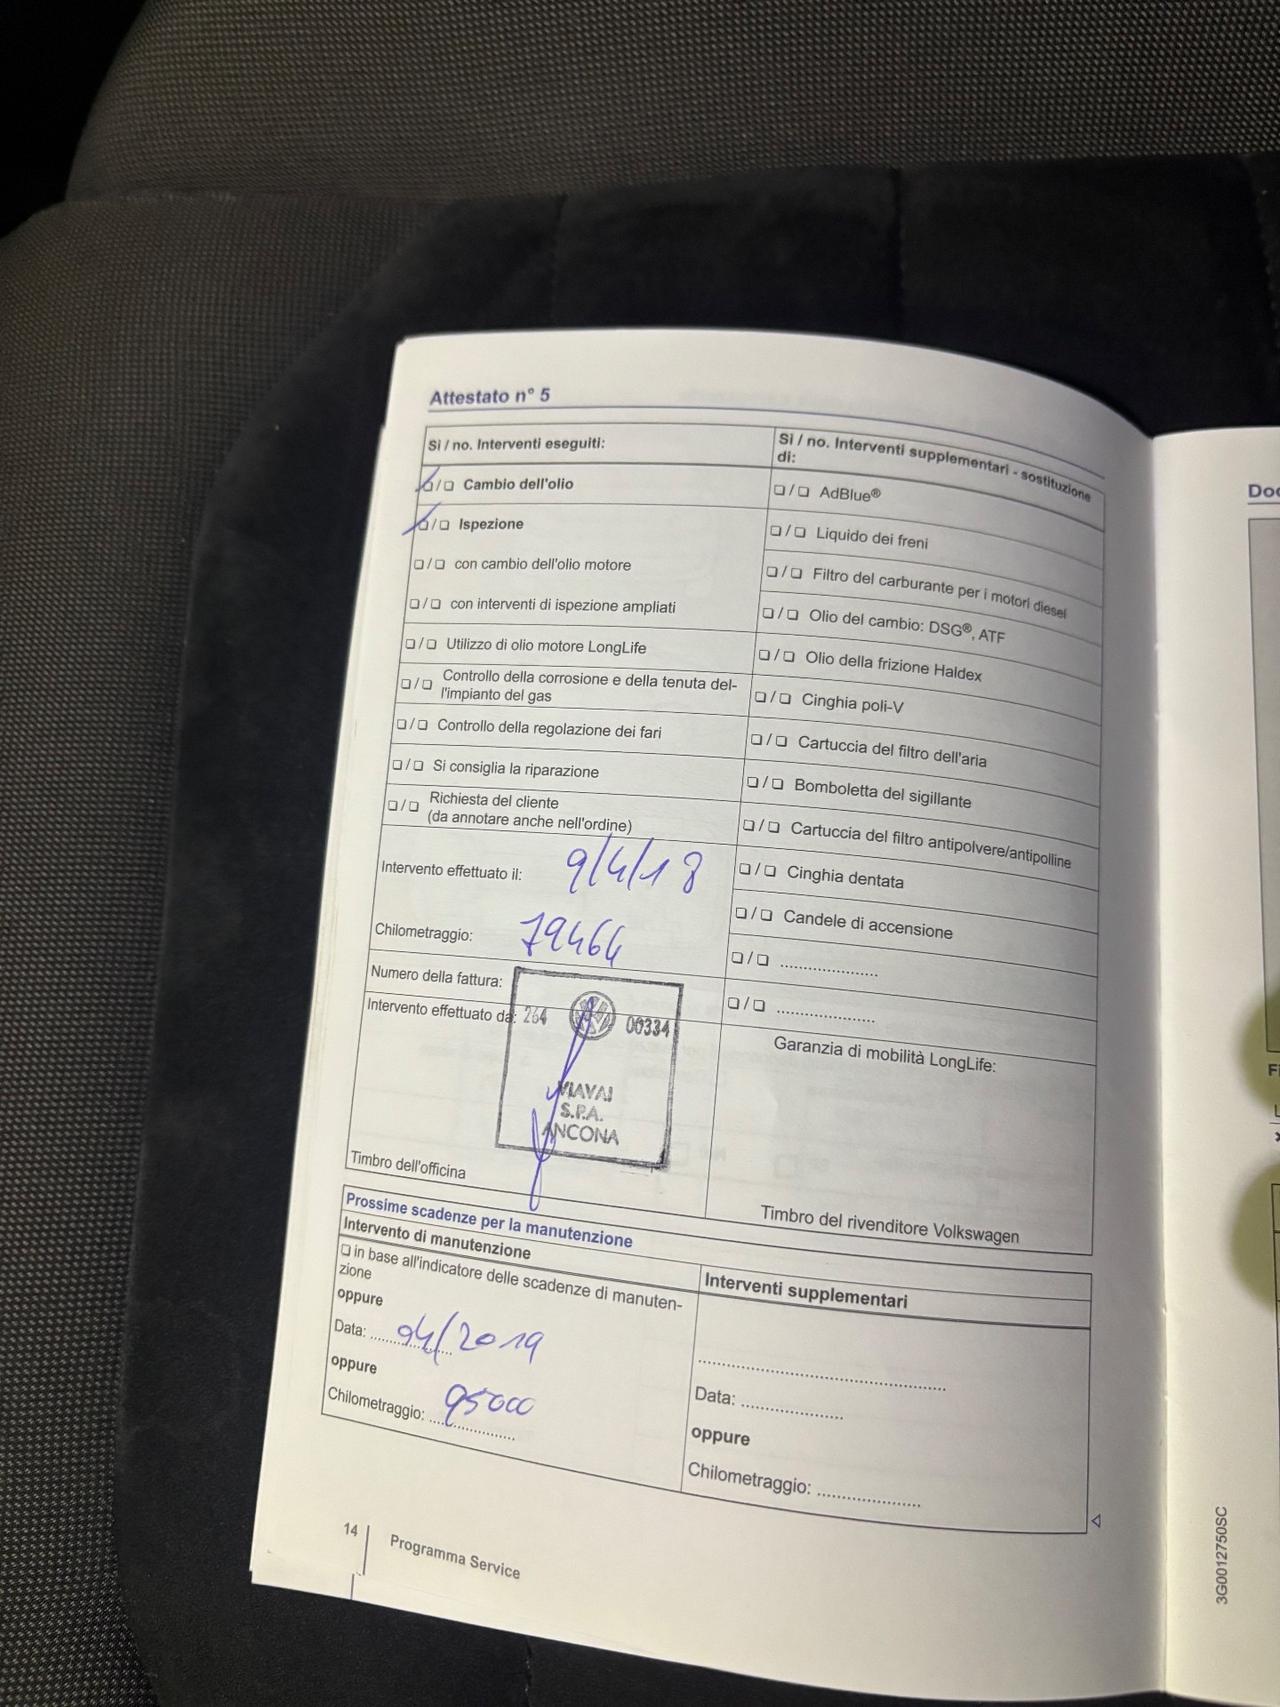 Attestato n° 5
Si / no. Interventi eseguiti:
❏/❏ Cambio dell'olio
❏/❏ Ispezione
❏/❏ con cambio dell'olio motore
❏/❏ con interventi di ispezione ampliati
❏/❏ Utilizzo di olio motore LongLife
❏/❏ Controllo della corrosione e della tenuta del-
l'impianto del gas
❏/❏ Controllo della regolazione dei fari
❏/❏ Si consiglia la riparazione
❏/❏ Richiesta del cliente
(da annotare anche nell'ordine)
Intervento effettuato il: 9/4/18
Chilometraggio: 79464
Numero della fattura:
Intervento effettuato da:
264 00334
VIAVAI
S.P.A.
ANCONA
Timbro dell'officina
Si / no. Interventi supplementari - sostituzione
di:
❏/❏ AdBlue®
❏/❏ Liquido dei freni
❏/❏ Filtro del carburante per i motori diesel
❏/❏ Olio del cambio: DSG®, ATF
❏/❏ Olio della frizione Haldex
❏/❏ Cinghia poli-V
❏/❏ Cartuccia del filtro dell'aria
❏/❏ Bomboletta del sigillante
❏/❏ Cartuccia del filtro antipolvere/antipolline
❏/❏ Cinghia dentata
❏/❏ Candele di accensione
❏/❏ .....................
❏/❏ .....................
Garanzia di mobilità LongLife:
Timbro del rivenditore Volkswagen
Prossime scadenze per la manutenzione
Intervento di manutenzione
❏ in base all'indicatore delle scadenze di manuten-
zione
oppure
Data: 04/2019
oppure
Chilometraggio: 95000
Interventi supplementari
.....................
Data: .....................
oppure
Chilometraggio: .....................
14
Programma Service
3G0012750SC